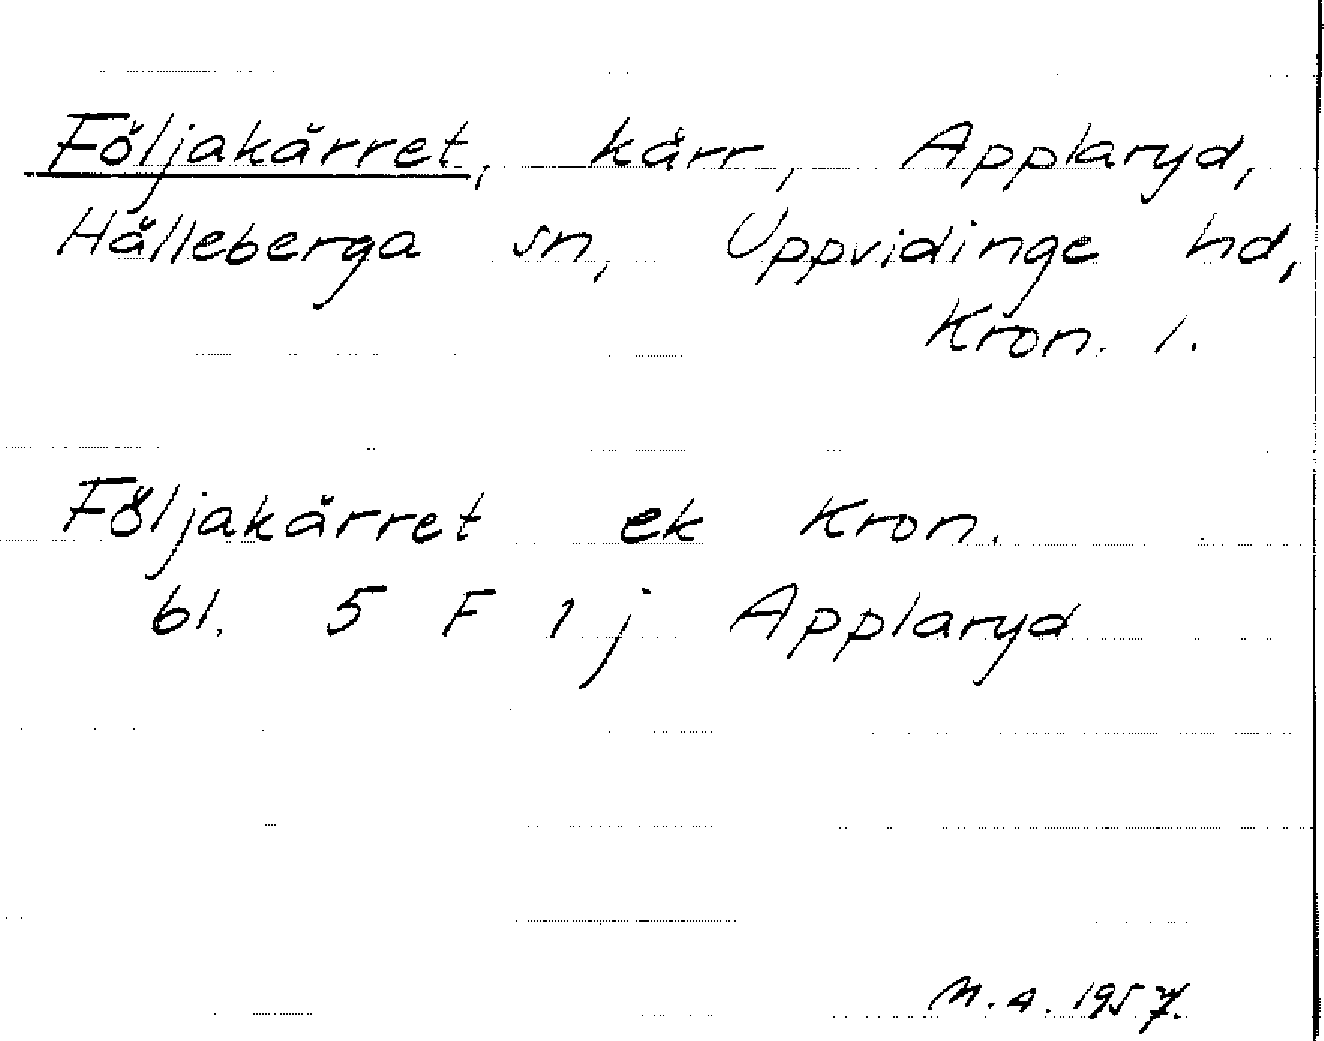 Följakärret, kärr, Applaryd,
Hälleberga sn, Uppvidinge hd,
Kron. l.
Följakärret ek Kron.
bl. 5 F 1 j Applaryd
M.A. 1957.